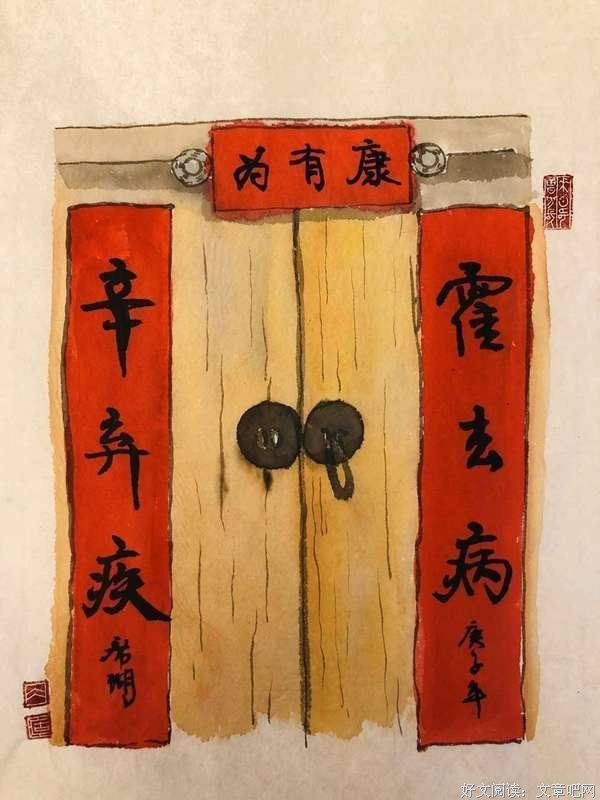 康有为
霍去病
庚子年
辛弃疾
好文阅读：文章吧网